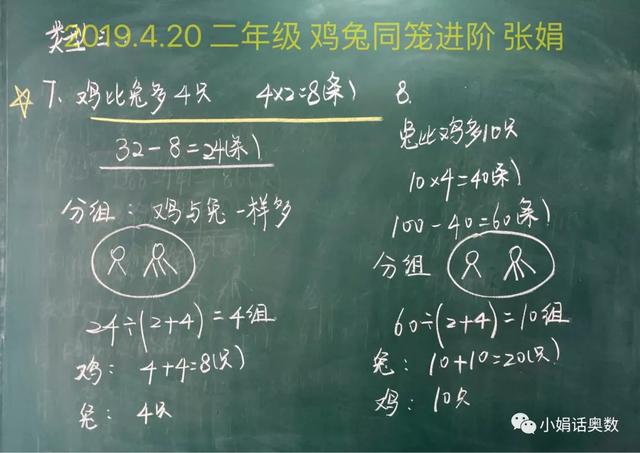 类型三:
2019.4.20 二年级 鸡兔同笼进阶 张娟
7、鸡比兔多4只 4×2=8(条)
32-8=24(条)
分组:鸡与兔一样多
24÷(2+4)=4组
鸡: 4+4=8(只)
兔: 4只
8.
兔比鸡多10只
10×4=40(条)
100-40=60(条)
分组
60÷(2+4)=10组
兔: 10+10=20(只)
鸡: 10只
小娟话奥数